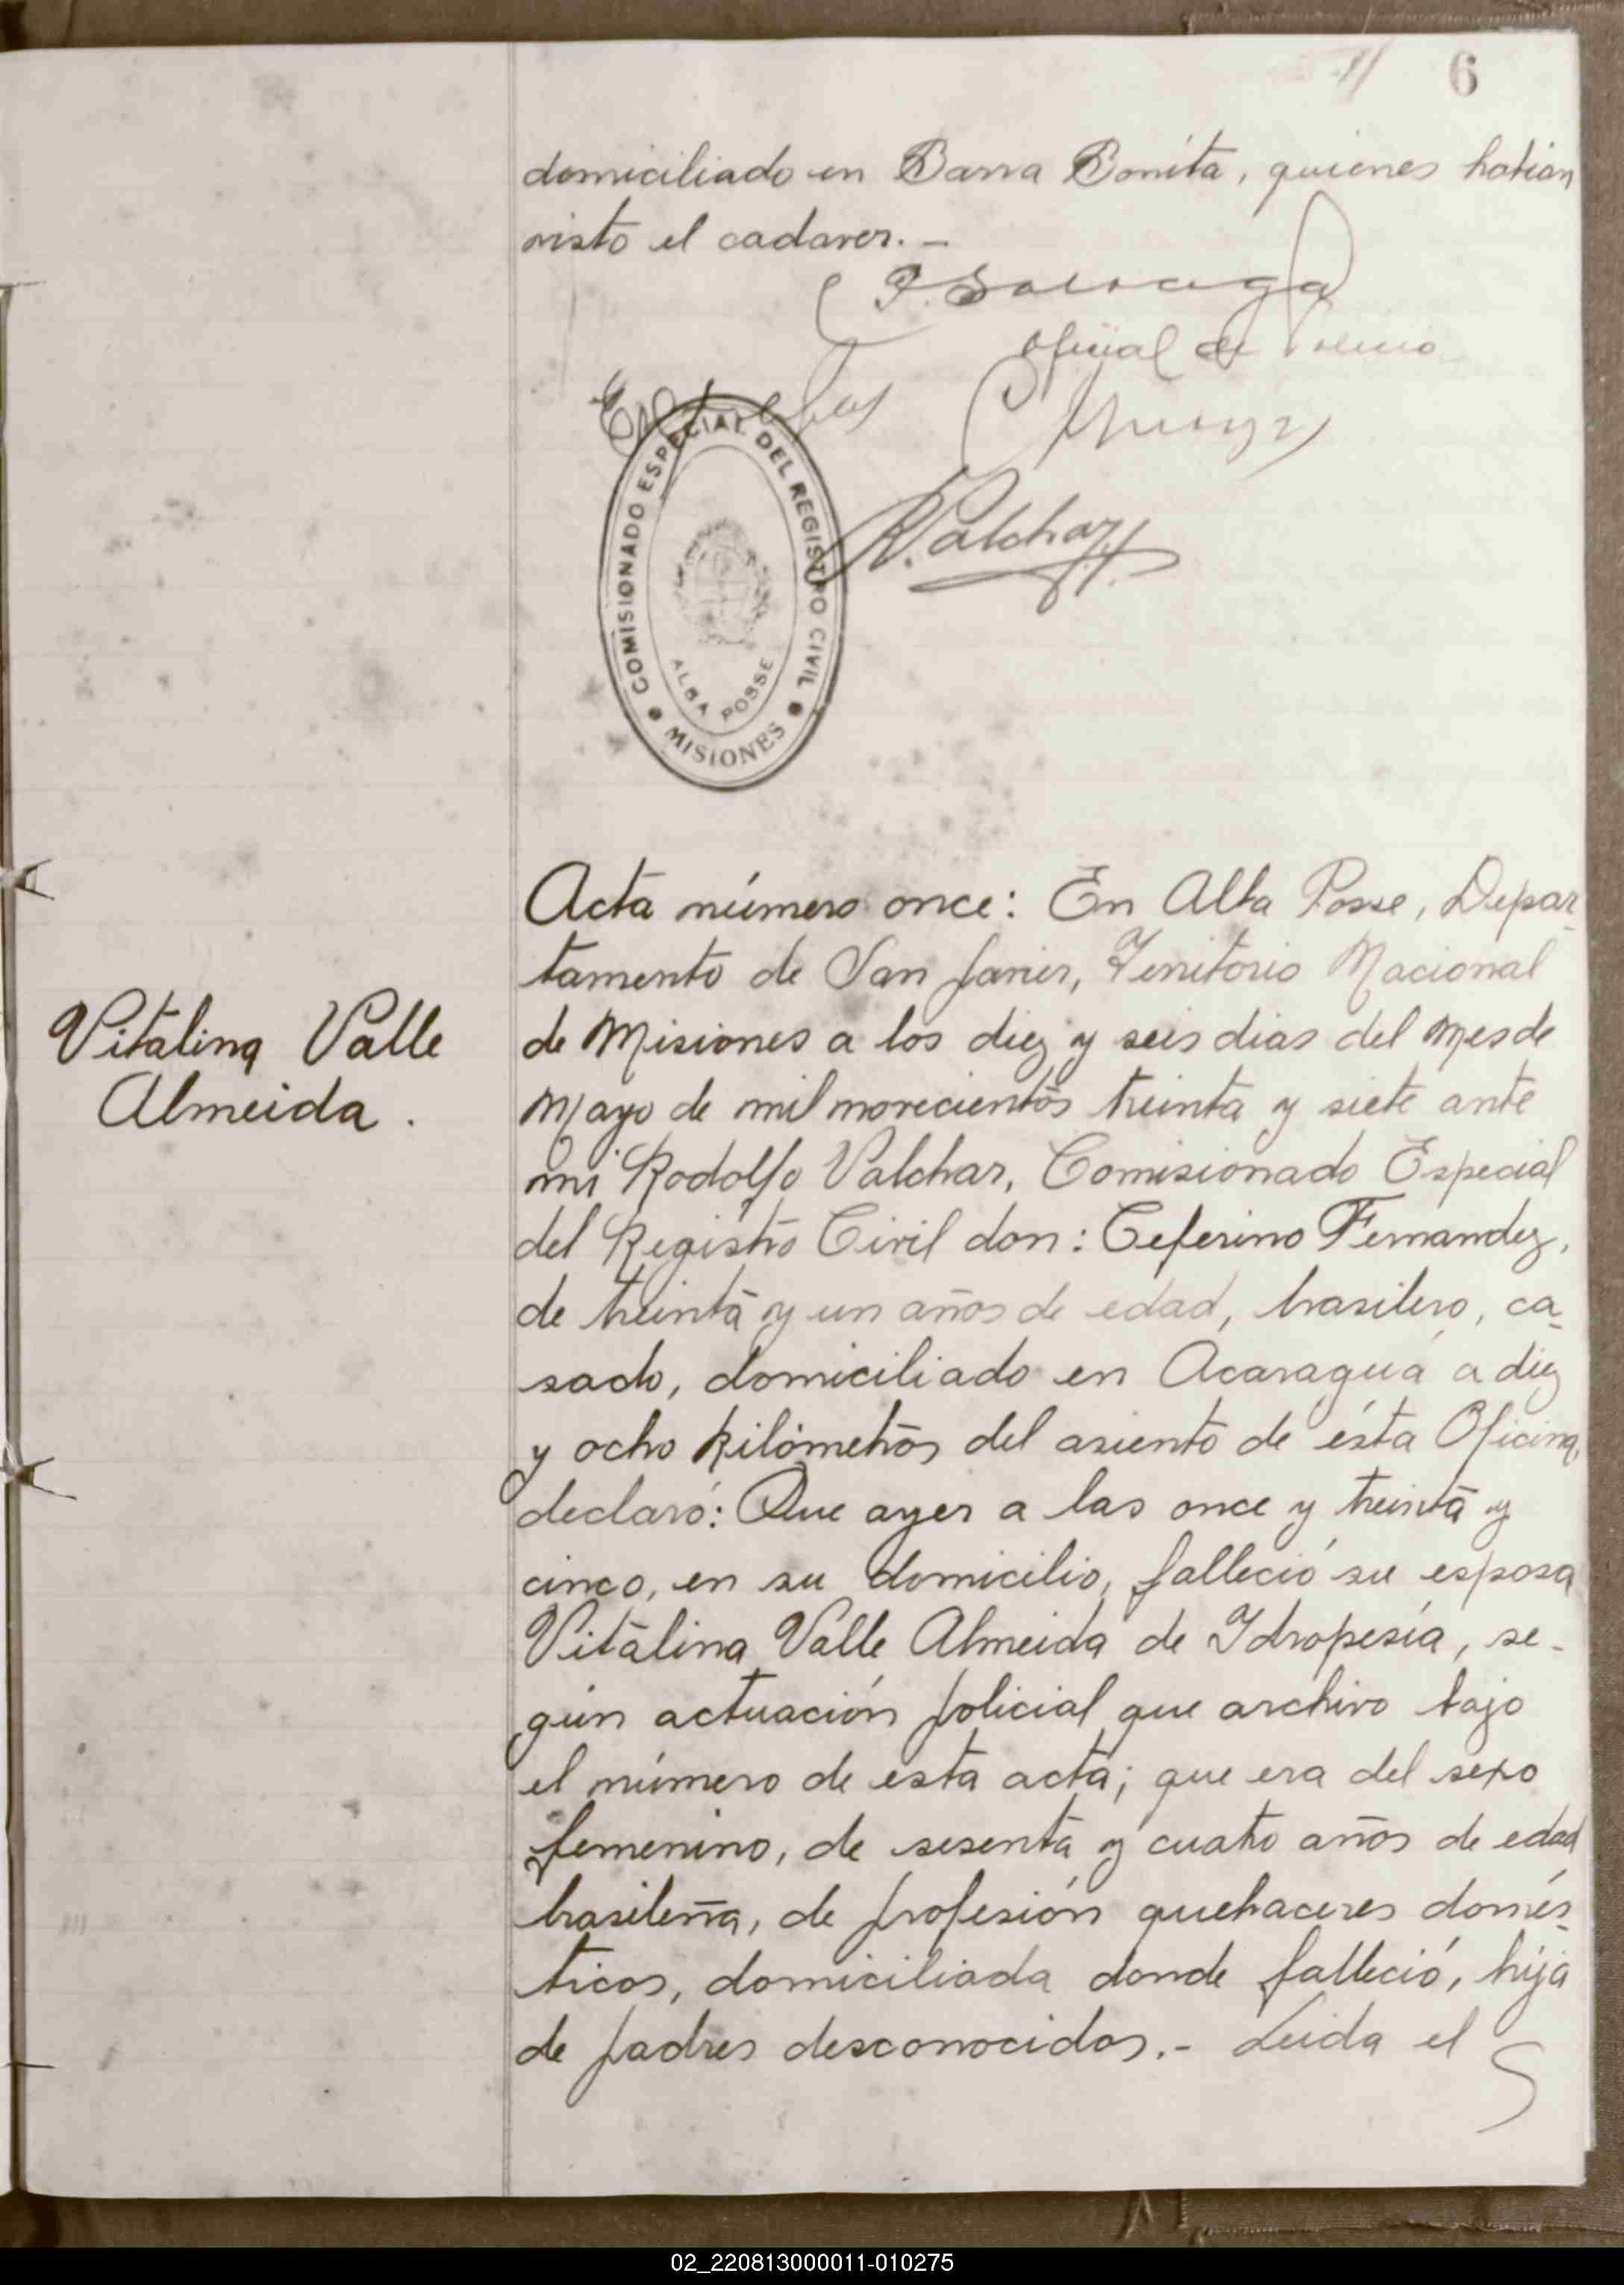 6
domiciliado en Barra Bonita, quienes habian
visto el cadaver. -
Oficial de Policia
R. Valchar
COMISIONADO ESPECIAL DEL REGISTRO CIVIL
ALBA POSSE
MISIONES
Acta número once: En Alba Posse, Depar-
tamento de San Javier, Territorio Nacional
de Misiones a los diez y seis dias del mes de
Vitalina Valle
Almeida.
Mayo de mil novecientos treinta y siete ante
mi Rodolfo Valchar, Comisionado Especial
del Registro Civil don: Ceferino Fernandez,
de treinta y un años de edad, brasilero, ca-
sado, domiciliado en Acaraguá a diez
y ocho kilómetros del asiento de ésta Oficina,
declaró: Que ayer a las once y treinta y
cinco, en su domicilio, falleció su esposa
Vitalina Valle Almeida de Idropesía, se-
gún actuación policial que archivo bajo
el número de esta acta; que era del sexo
femenino, de sesenta y cuatro años de edad
brasileña, de profesión quehaceres domés-
ticos, domiciliada donde falleció, hija
de padres desconocidos.- Leida el
02_220813000011-010275